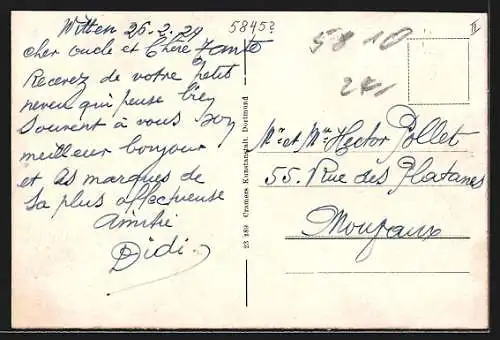 Witten 26.2.29
cher oncle et chère Tante
Recevez de votre petit
neveu qui pense très
souvent à vous son
meilleur bonjour
et les marques de
sa plus affectueuse
Amitié
Didi
23 289 Cramers Kunstanstalt, Dortmund
5845?
5810
2
II
Mr et Mme Hector Pollet
55. Rue des Platanes
Mouvaux